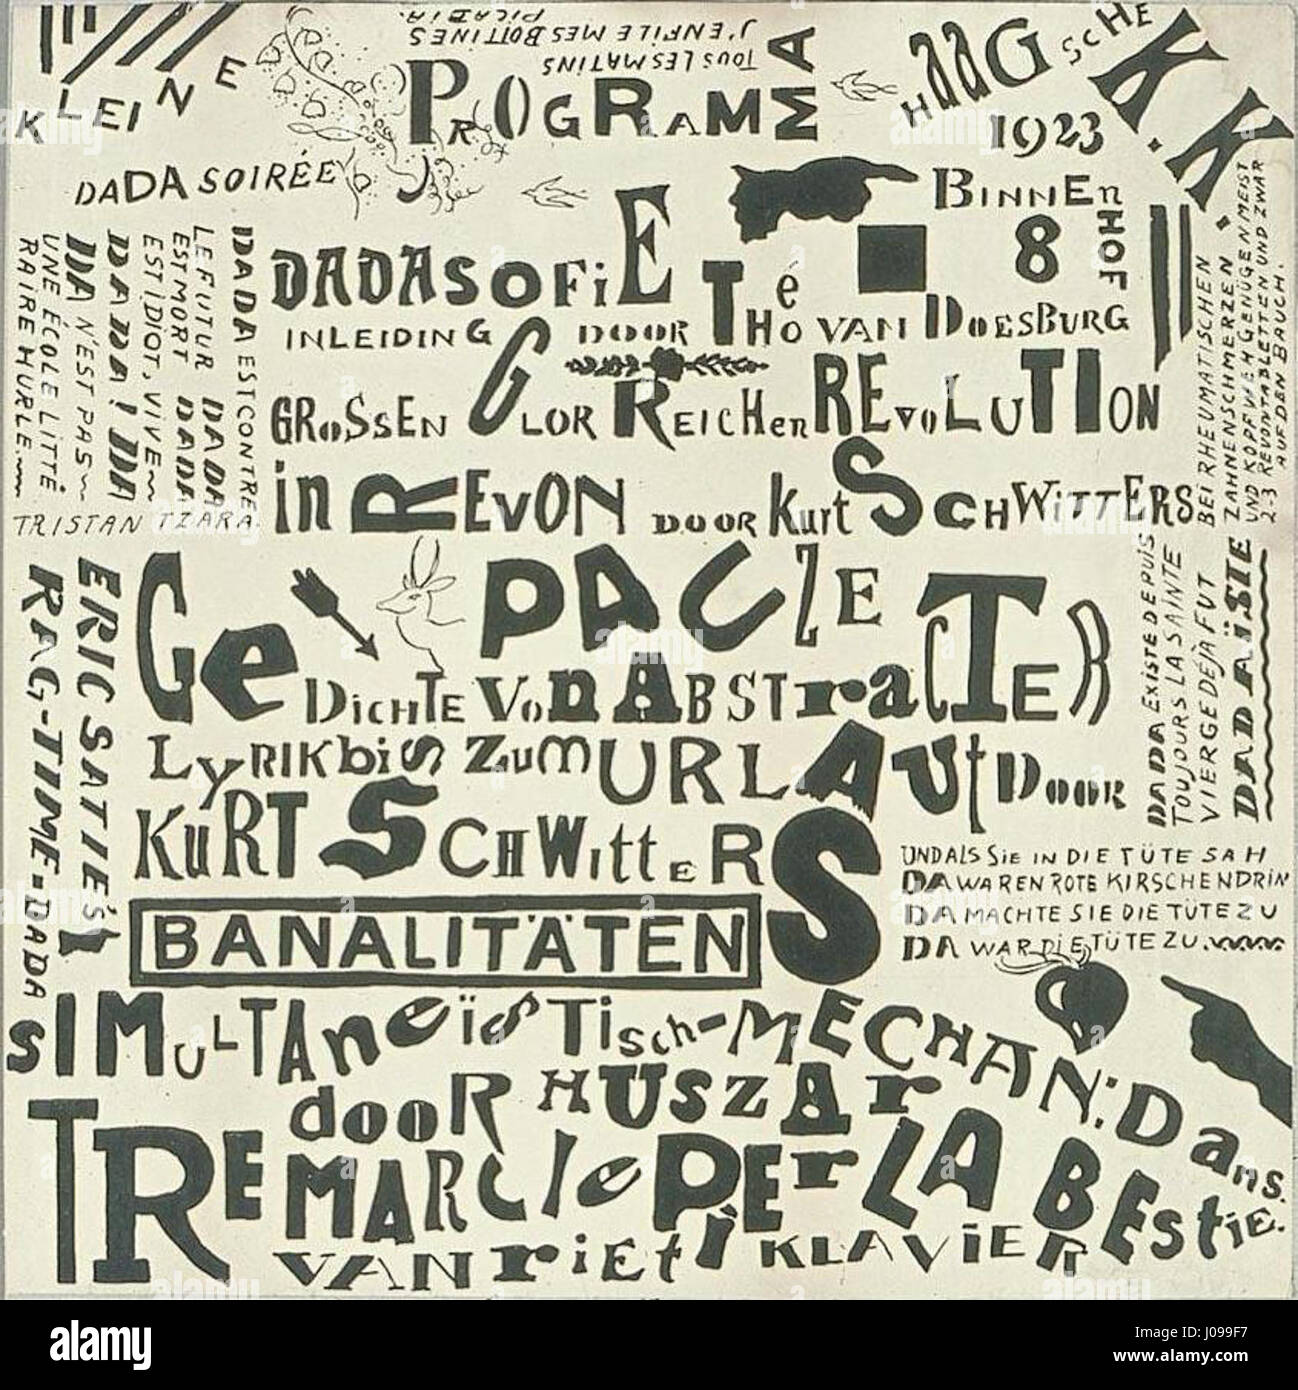 KLEINE
DADA SOIRÉE
TOUS LES MATINS
J'ENFILE MES BOTTINES
PICABIA.
PROGRAMMA
HAAGSCHE K.K.
1923
BINNENHOF
8
DADASOFIE
INLEIDING DOOR Théo VAN DOESBURG
GROSSEN GLORREICHEN REVOLUTION
in REVON DOOR Kurt SCHWITTERS
DADA EST CONTRE
LE FUTUR DADA
EST MORT DADA
EST IDIOT, VIVE
DADA! DADA
DA N'EST PAS
UNE ÉCOLE LITTÉ
RAIRE HURLE
TRISTAN TZARA.
BEI RHEUMATISCHEN
ZAHNENSCHMERZEN
UND KOPFWEH GENÜGEN MEIST
2-3 REVONTABLETTEN UND ZWAR
AUF DEN BAUCH.
PAUZE
Ge
DICHTE VOn ABSTraCTER
LYRIK biS ZUm URLAUt DOOR
KURT SCHWittERS
BANALITÄTEN
ERIC SATIE'S
RAG-TIME-DADA
DADA EXISTE DEPUIS
TOUJOURS LA SAINTE
VIERGE DÉJA FUT
DADAÏSIE
UND ALS SIE IN DIE TÜTE SAH
DA WAREN ROTE KIRSCHEN DRIN
DA MACHTE SIE DIE TÜTE ZU
DA WAR DIE TÜTE ZU.
SIMULTANEïSTisch-MECHAN: DAns.
dooR HUSZAr
TRE MARCIe PEr LA BEstiE.
VAN riEti KLAVIER
alamy
Image ID: J099F7
www.alamy.com